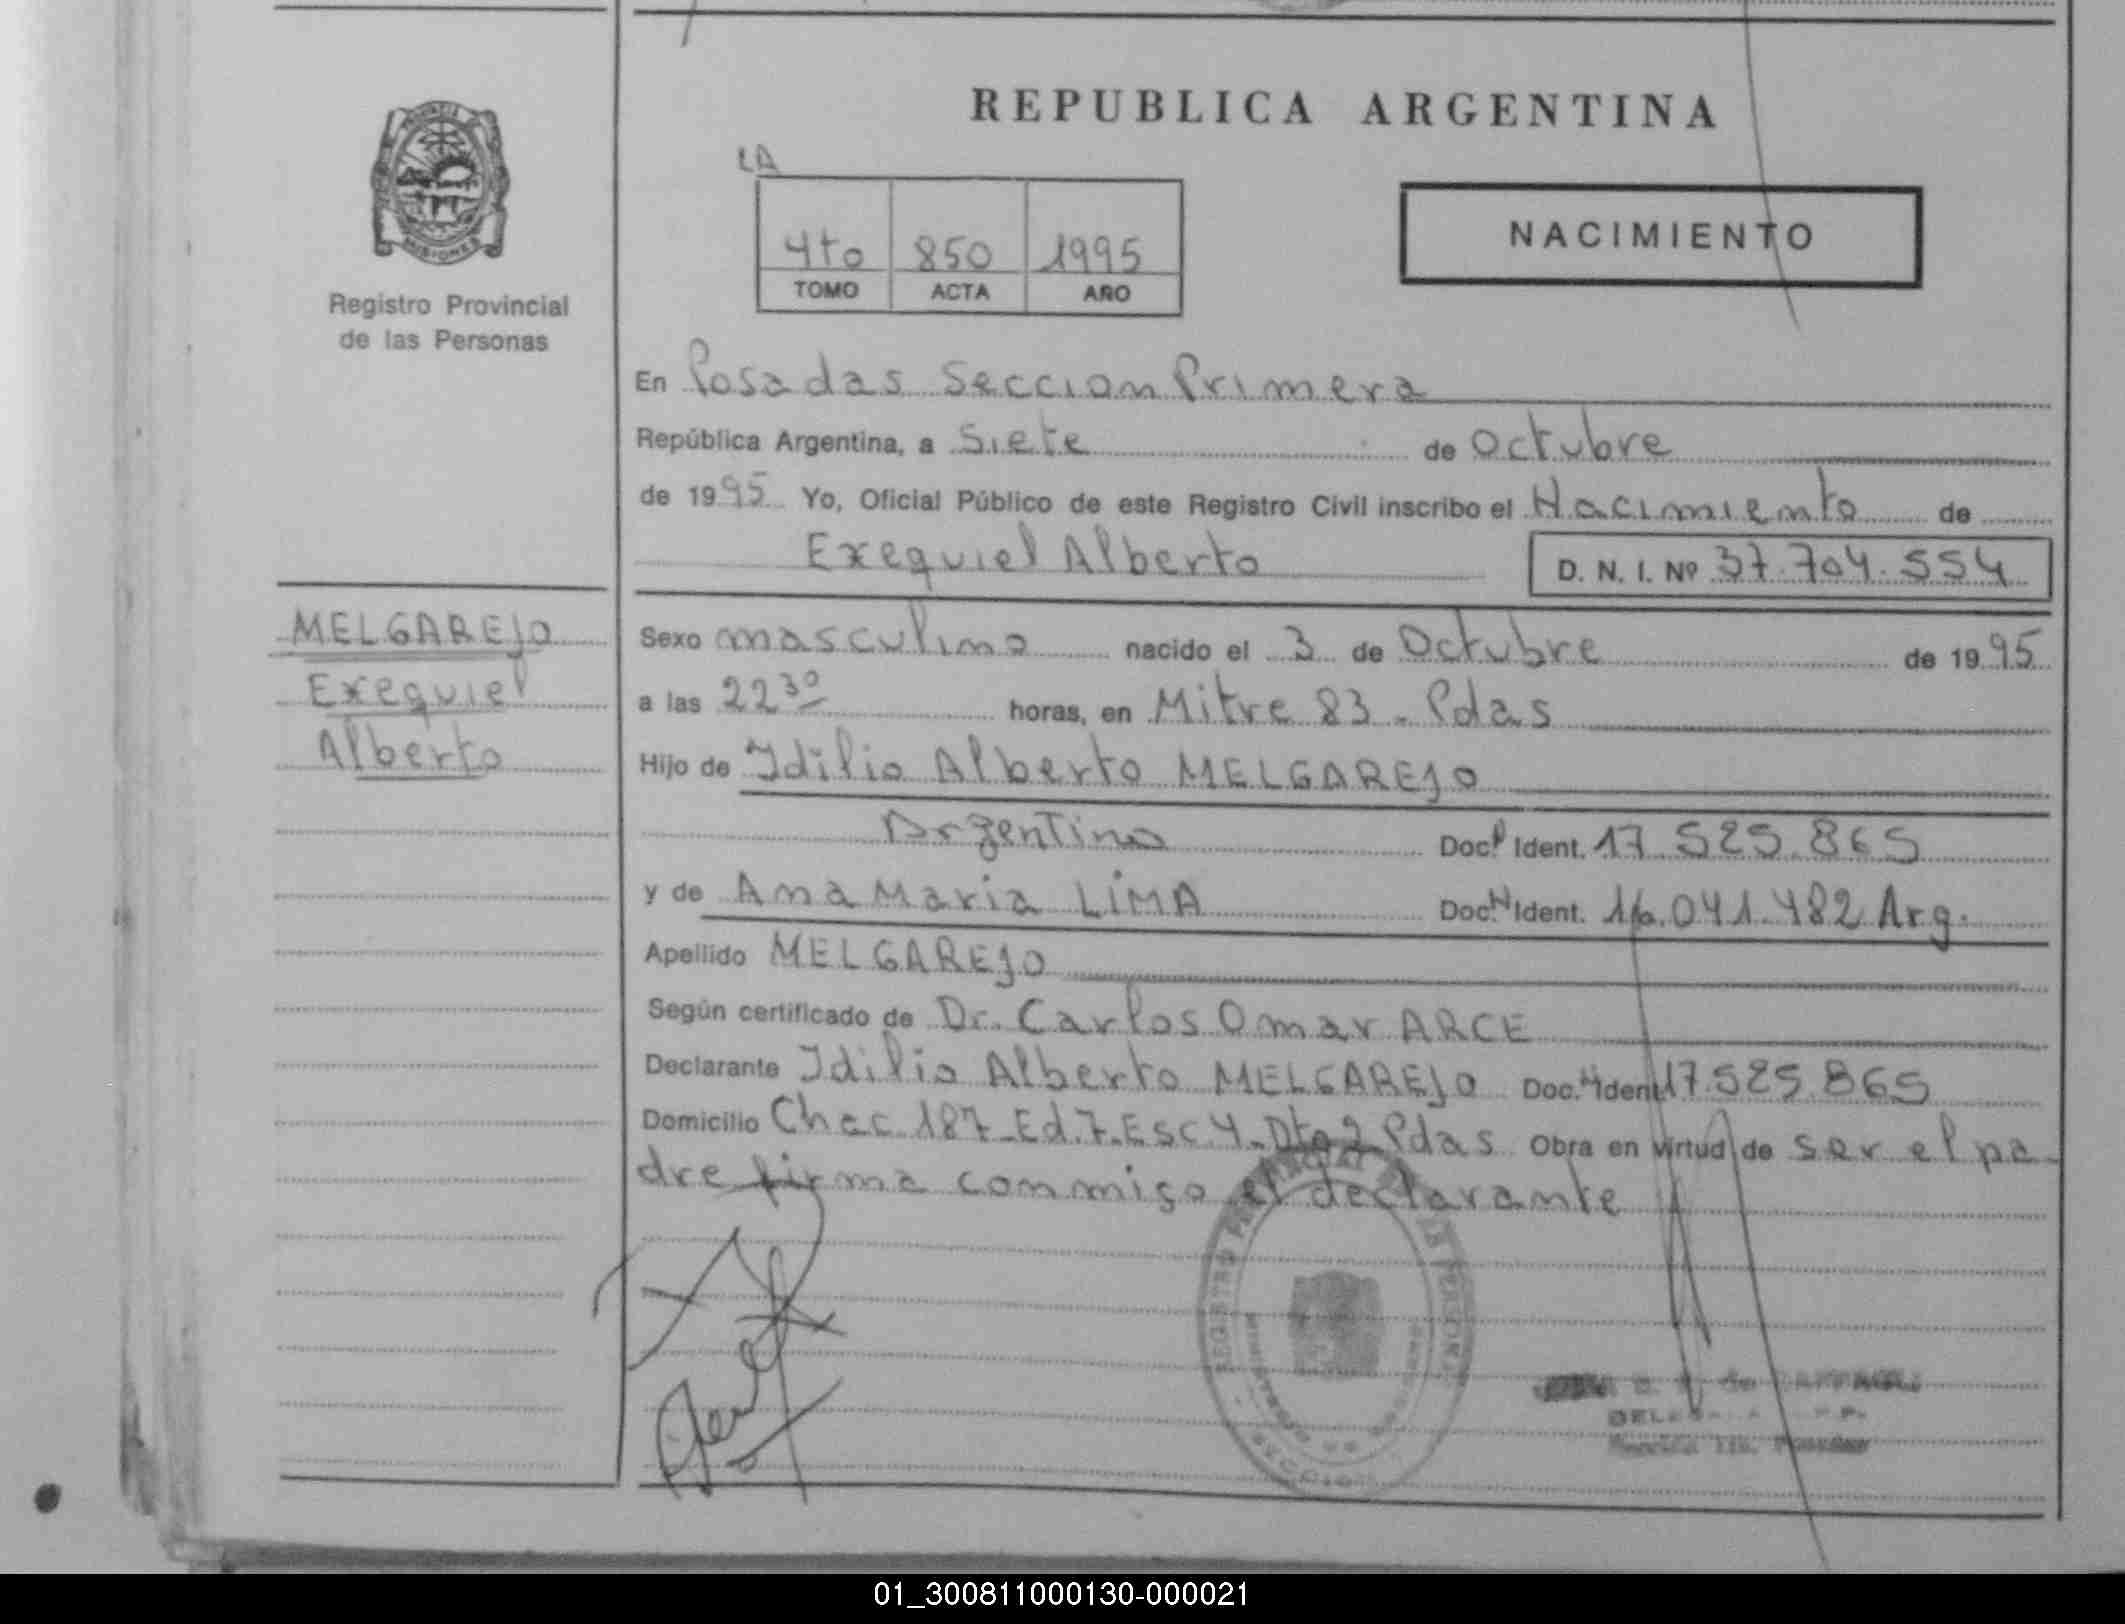 REPUBLICA ARGENTINA
LA
4to 850 1995
TOMO ACTA AÑO
NACIMIENTO
MISIONES
Registro Provincial
de las Personas
En Posadas Seccion Primera
República Argentina, a Siete de Octubre
de 1995 Yo, Oficial Público de este Registro Civil inscribo el Nacimiento de
Exequiel Alberto D. N. I. Nº 37.704.554
MELGAREJO
Exequiel
Alberto
Sexo masculino nacido el 3 de Octubre de 1995
a las 22 30 horas, en Mitre 83 - Pdas
Hijo de Idilio Alberto MELGAREJO
Argentino Doc. Ident. 17.525.865
y de Ana Maria LIMA Doc. Ident. 16.041.482 Arg.
Apellido MELGAREJO
Según certificado de Dr. Carlos Omar ARCE
Declarante Idilio Alberto MELGAREJO Doc. Ident 17.525.865
Domicilio Chac 187-Ed.7-Esc 4-Dto 2 Pdas Obra en virtud de ser el pa-
dre firma conmigo el declarante
01_300811000130-000021